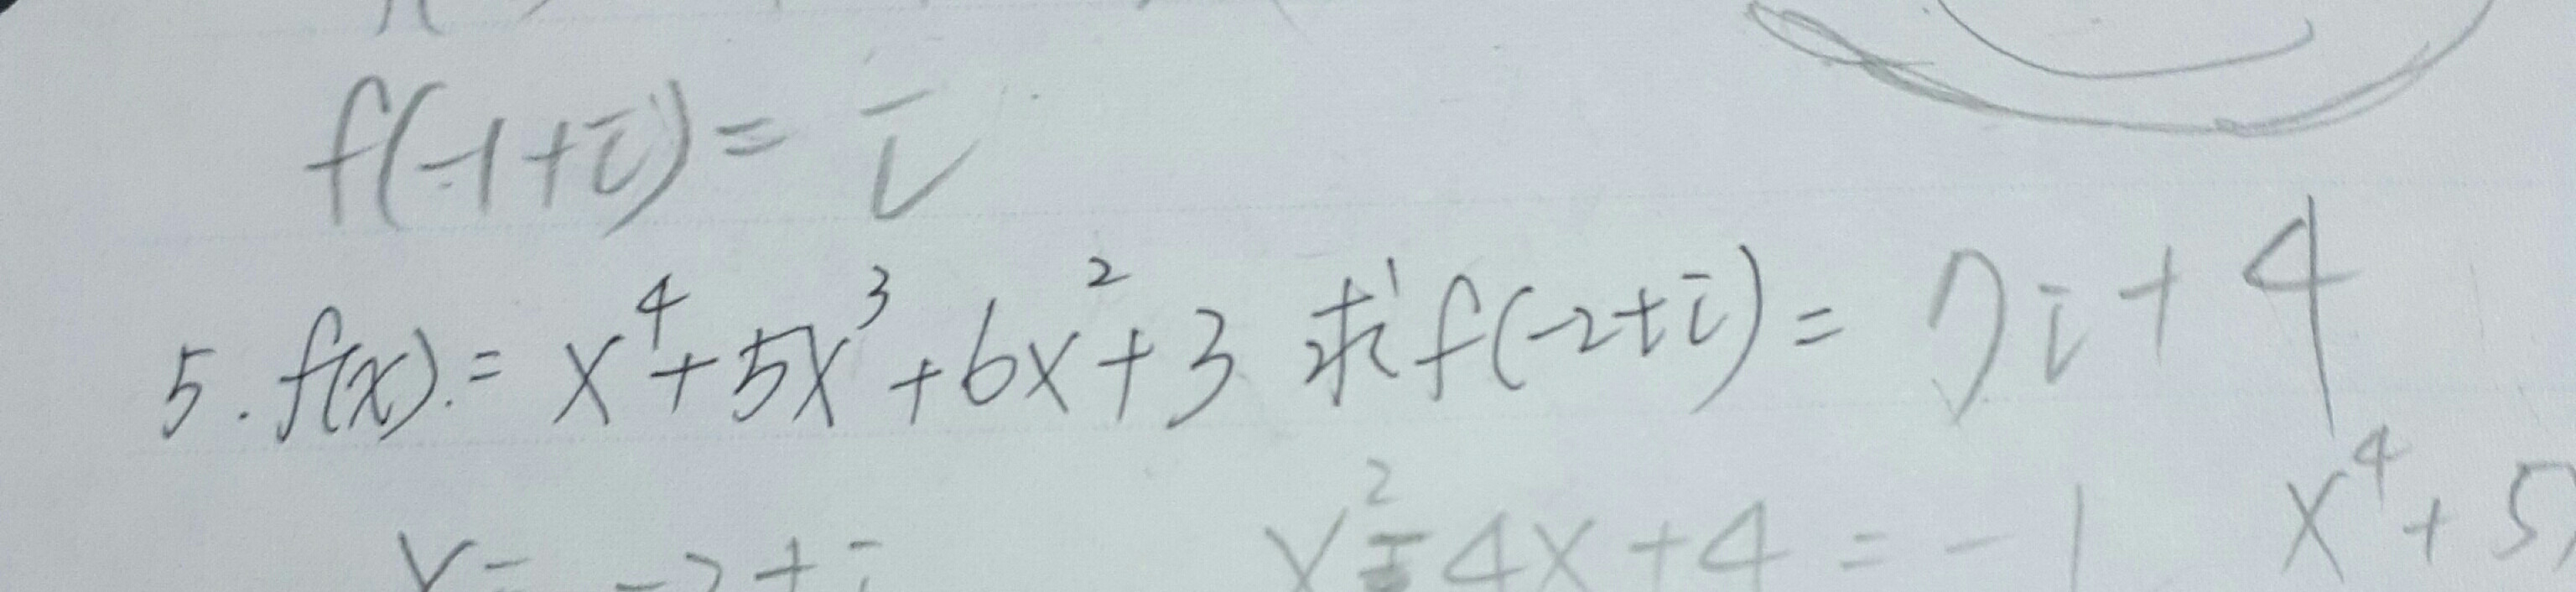 f(-1+i)= i
5. f(x)= x⁴+5x³+6x²+3 求f(-2+i)= 7i+4
x= -2+i x²+4x+4=-1 x⁴+5